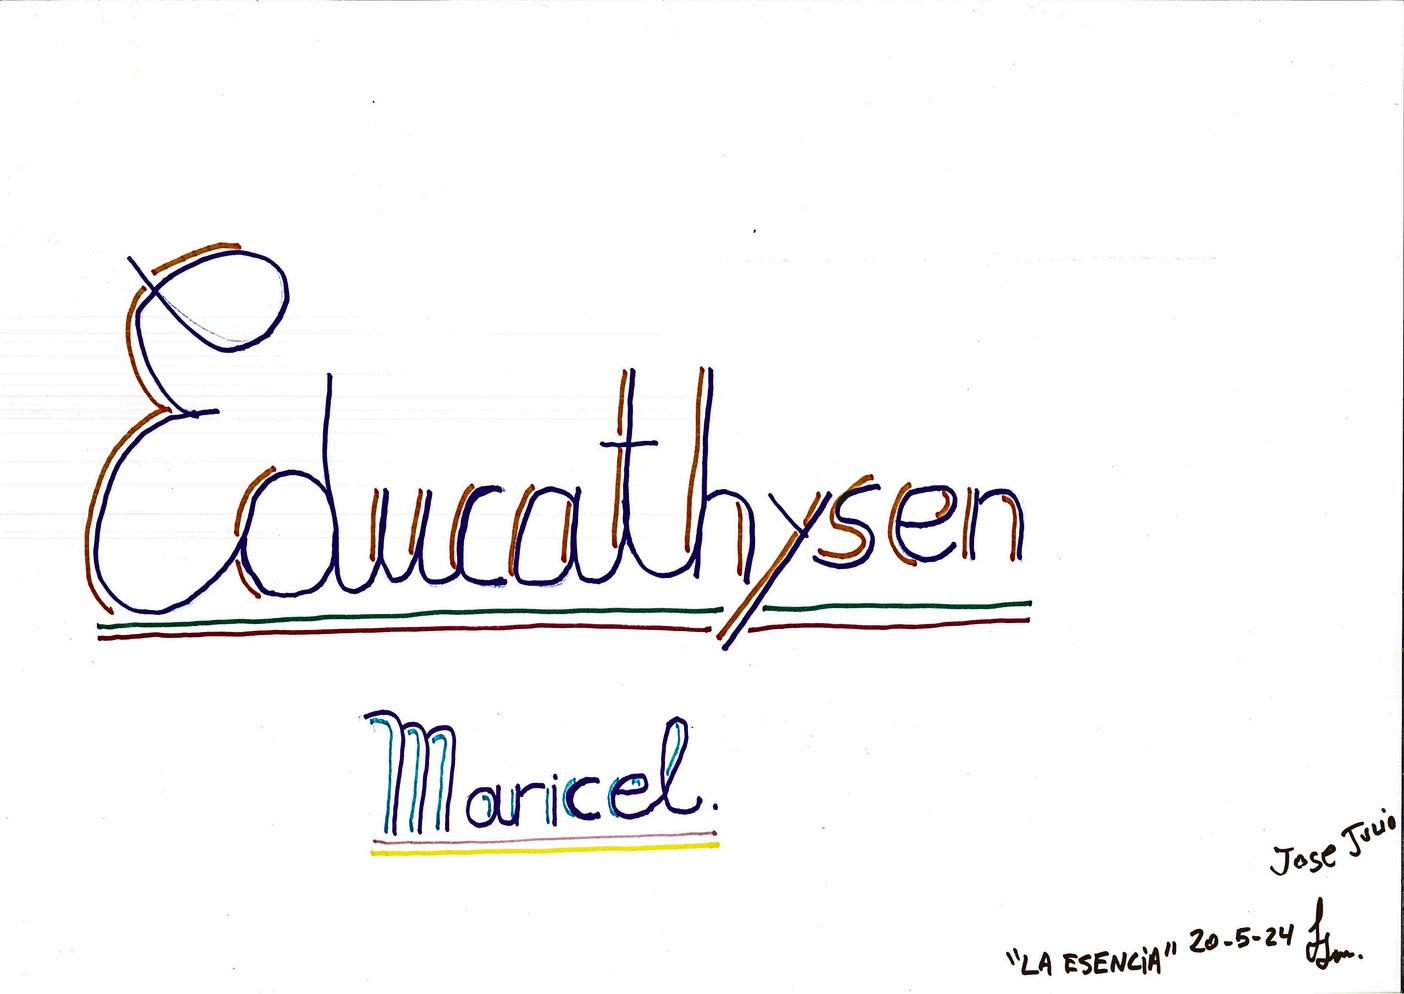 Educathysen
Maricel.
Jose Julio
"LA ESENCiA" 20-5-24